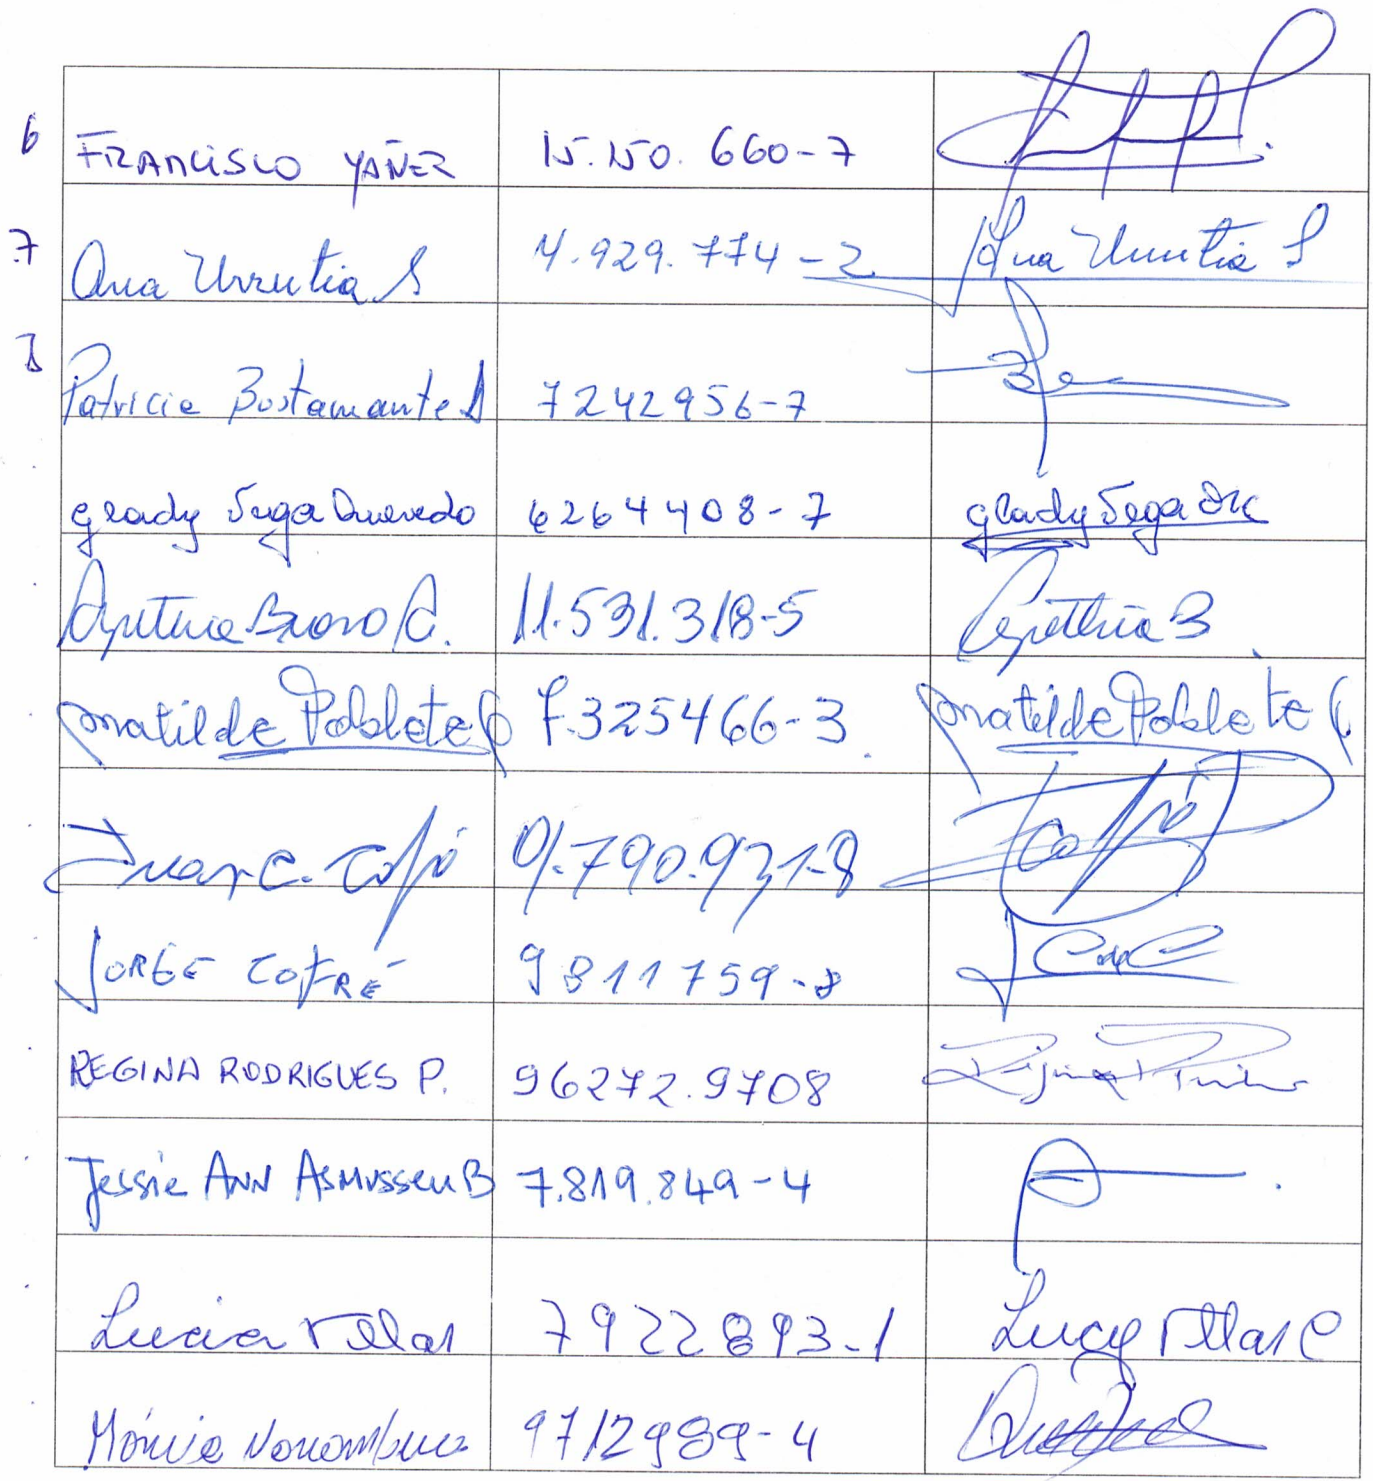 6 FRANCISCO YAÑEZ 15.150.660-7
7 Ana Urrutia S 4.929.774-2 Ana Urrutia S
8 Patricia Bustamante A 7242956-7
Glady Vega Quevedo 6264408-7 Glady Vega
Cynthia Bravo C. 11.531.318-5 Cynthia B
Matilde Poblete C 7.325466-3 Matilde Poblete C
Juan C. Cofré 9.790.931-8 Cofré
JORGE COFRÉ 9811759-8
REGINA RODRIGUES P. 96272.9708 Regina
Jessie ANN ASMUSSEN B 7.819.849-4
Lucia Villar 7922893-1 Lucy Villar C
Mónica Norambuena 9712989-4